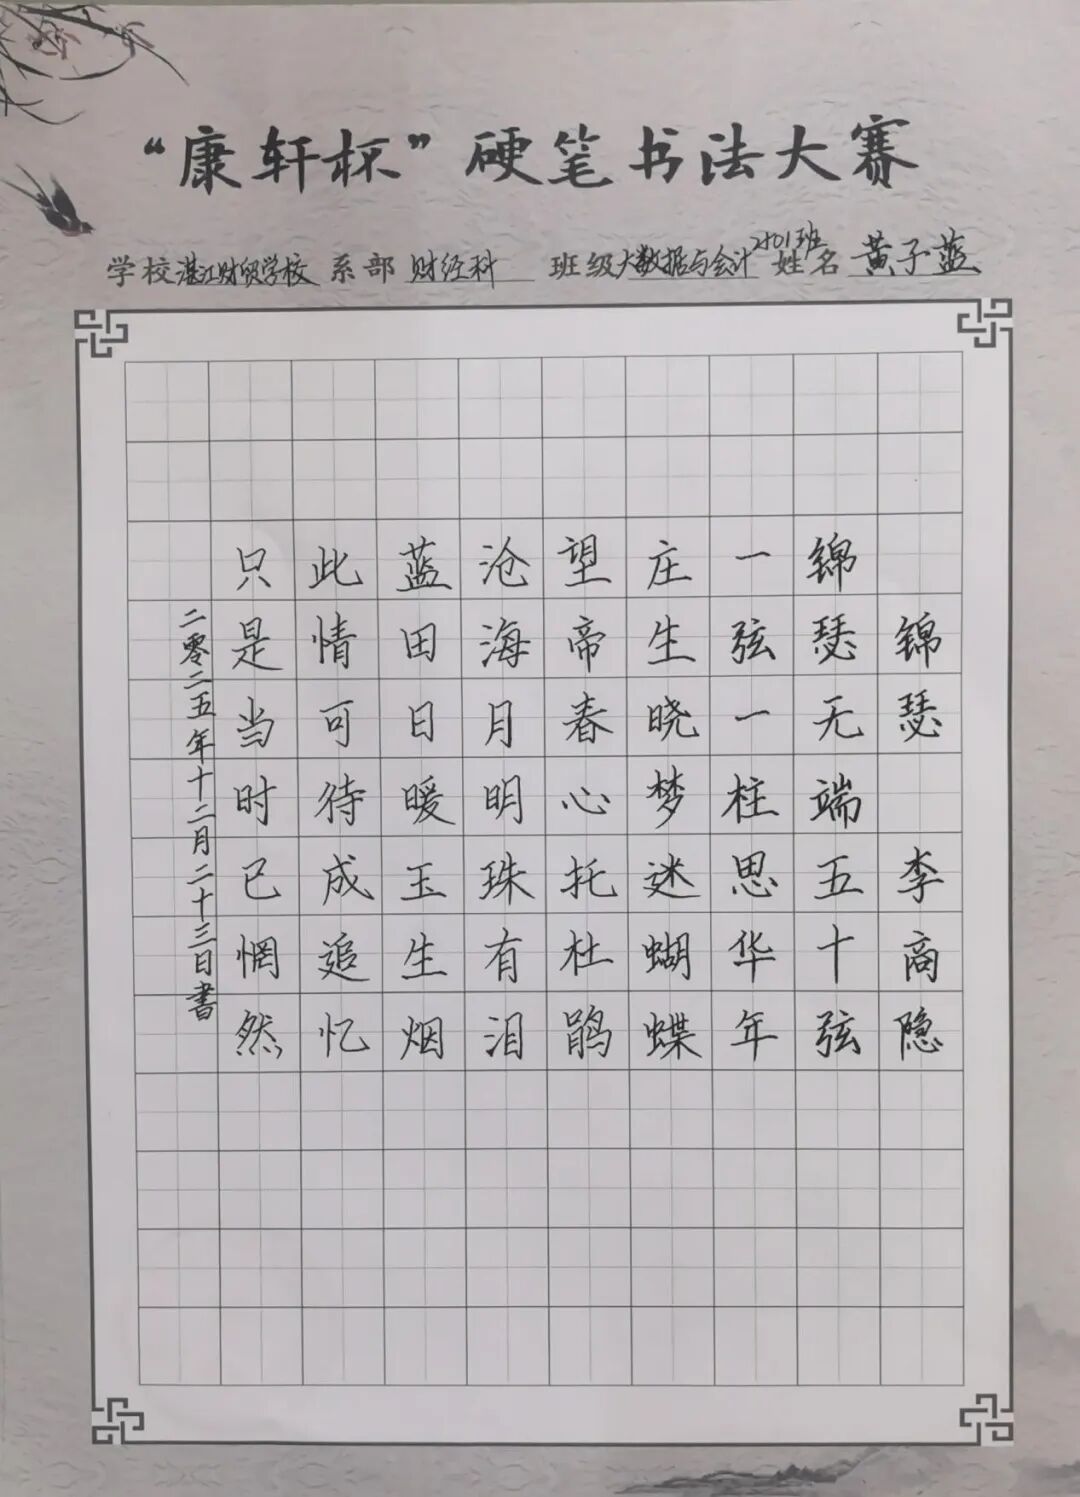 “康轩杯”硬笔书法大赛
学校湛江财贸学校 系部 财经科 班级大数据与会计2401班 姓名 黄子蓝
锦瑟 李商隐
锦瑟无端五十弦
一弦一柱思华年
庄生晓梦迷蝴蝶
望帝春心托杜鹃
沧海月明珠有泪
蓝田日暖玉生烟
此情可待成追忆
只是当时已惘然
二零二五年十二月二十三日書